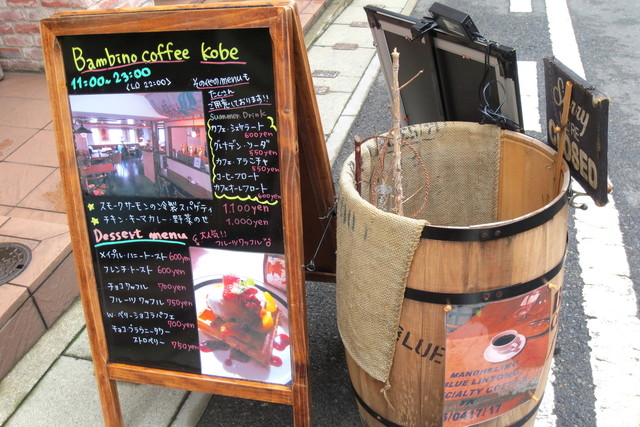 Bambino coffee Kobe
11:00~23:00
(LO 22:00)
その他のmenuも
たくさん
ご用意しております!!
Summer Drink
カフェ・シェケラート
600yen
グレナデン・ソーダ
550yen
カフェ・アラニチャ
550yen
コーヒーフロート
カフェオレフロート
600yen
スモークサーモンの冷製スパゲティ 1,100yen
チキン・キーマカレー・野菜のせ 1,000yen
Dessert menu
大人気!!
フルーツワッフル
メイプルハニートースト 600yen
フレンチトースト 600yen
チョコワッフル 700yen
フルーツワッフル 750yen
W・ベリーショコラパフェ
700yen
チョコ・ブラウニータワー
ストロベリー 750yen
Sorry
WE ARE
CLOSED
BLUE
MANDHELING
BLUE LINTONG
SPECIALTY COFFEE